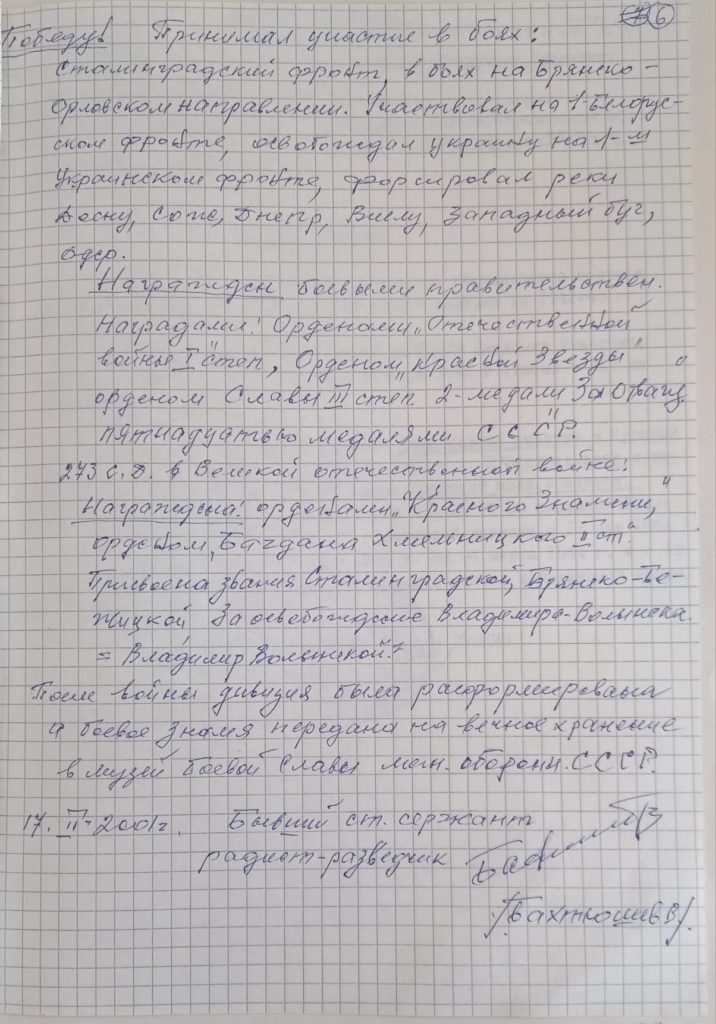 6
Победу! Принимал участие в боях:
Сталинградский фронт, в боях на Брянско-
Орловском направлении. Участвовал на 1-Белорус-
ском фронте, освобождал украину на 1-м
Украинском фронте, форсировал реки
Десну, Сож, Днепр, Вислу, Западный буг,
одер.
Награжден боевыми правительствен.
Наградами: Орденами „Отечественной
войны I степ", Орденом „Красной Звезды"
орденом Славы III степ. 2-медали За Отвагу"
пятнадцатью медалями СССР.
273 с.д. в Великой отечественной войне:
Награждена: орденами „Красного Знамени,"
орденом „Багдана Хмельницкого II ст."
Присвоена звания Сталинградской, Брянско-Бе-
жицкой За освобождение Владимира-Волынска
= Владимир Волынской.=
После войны дивизия была расформирована
а боевое Знамя передана на вечное хранение
в музей боевой Славы мин. обороны. СССР.
17. II-2001г. Бывший ст. сержант
радист-разведчик
/Бахтюшев В/.